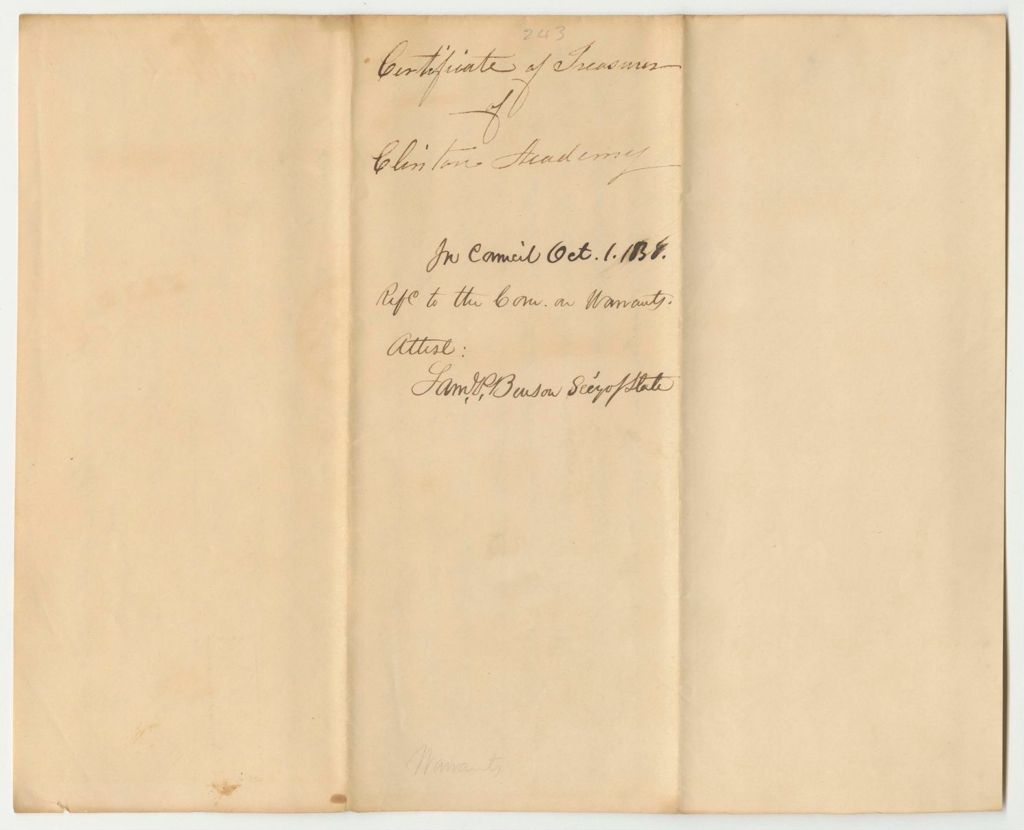 243
Certificate of Treasurer
of
Clinton Academy
In Council Oct. 1. 1838.
Refd to the Com. on Warrants.
Attest:
Saml. P. Benson Sec'y of State
Warrants